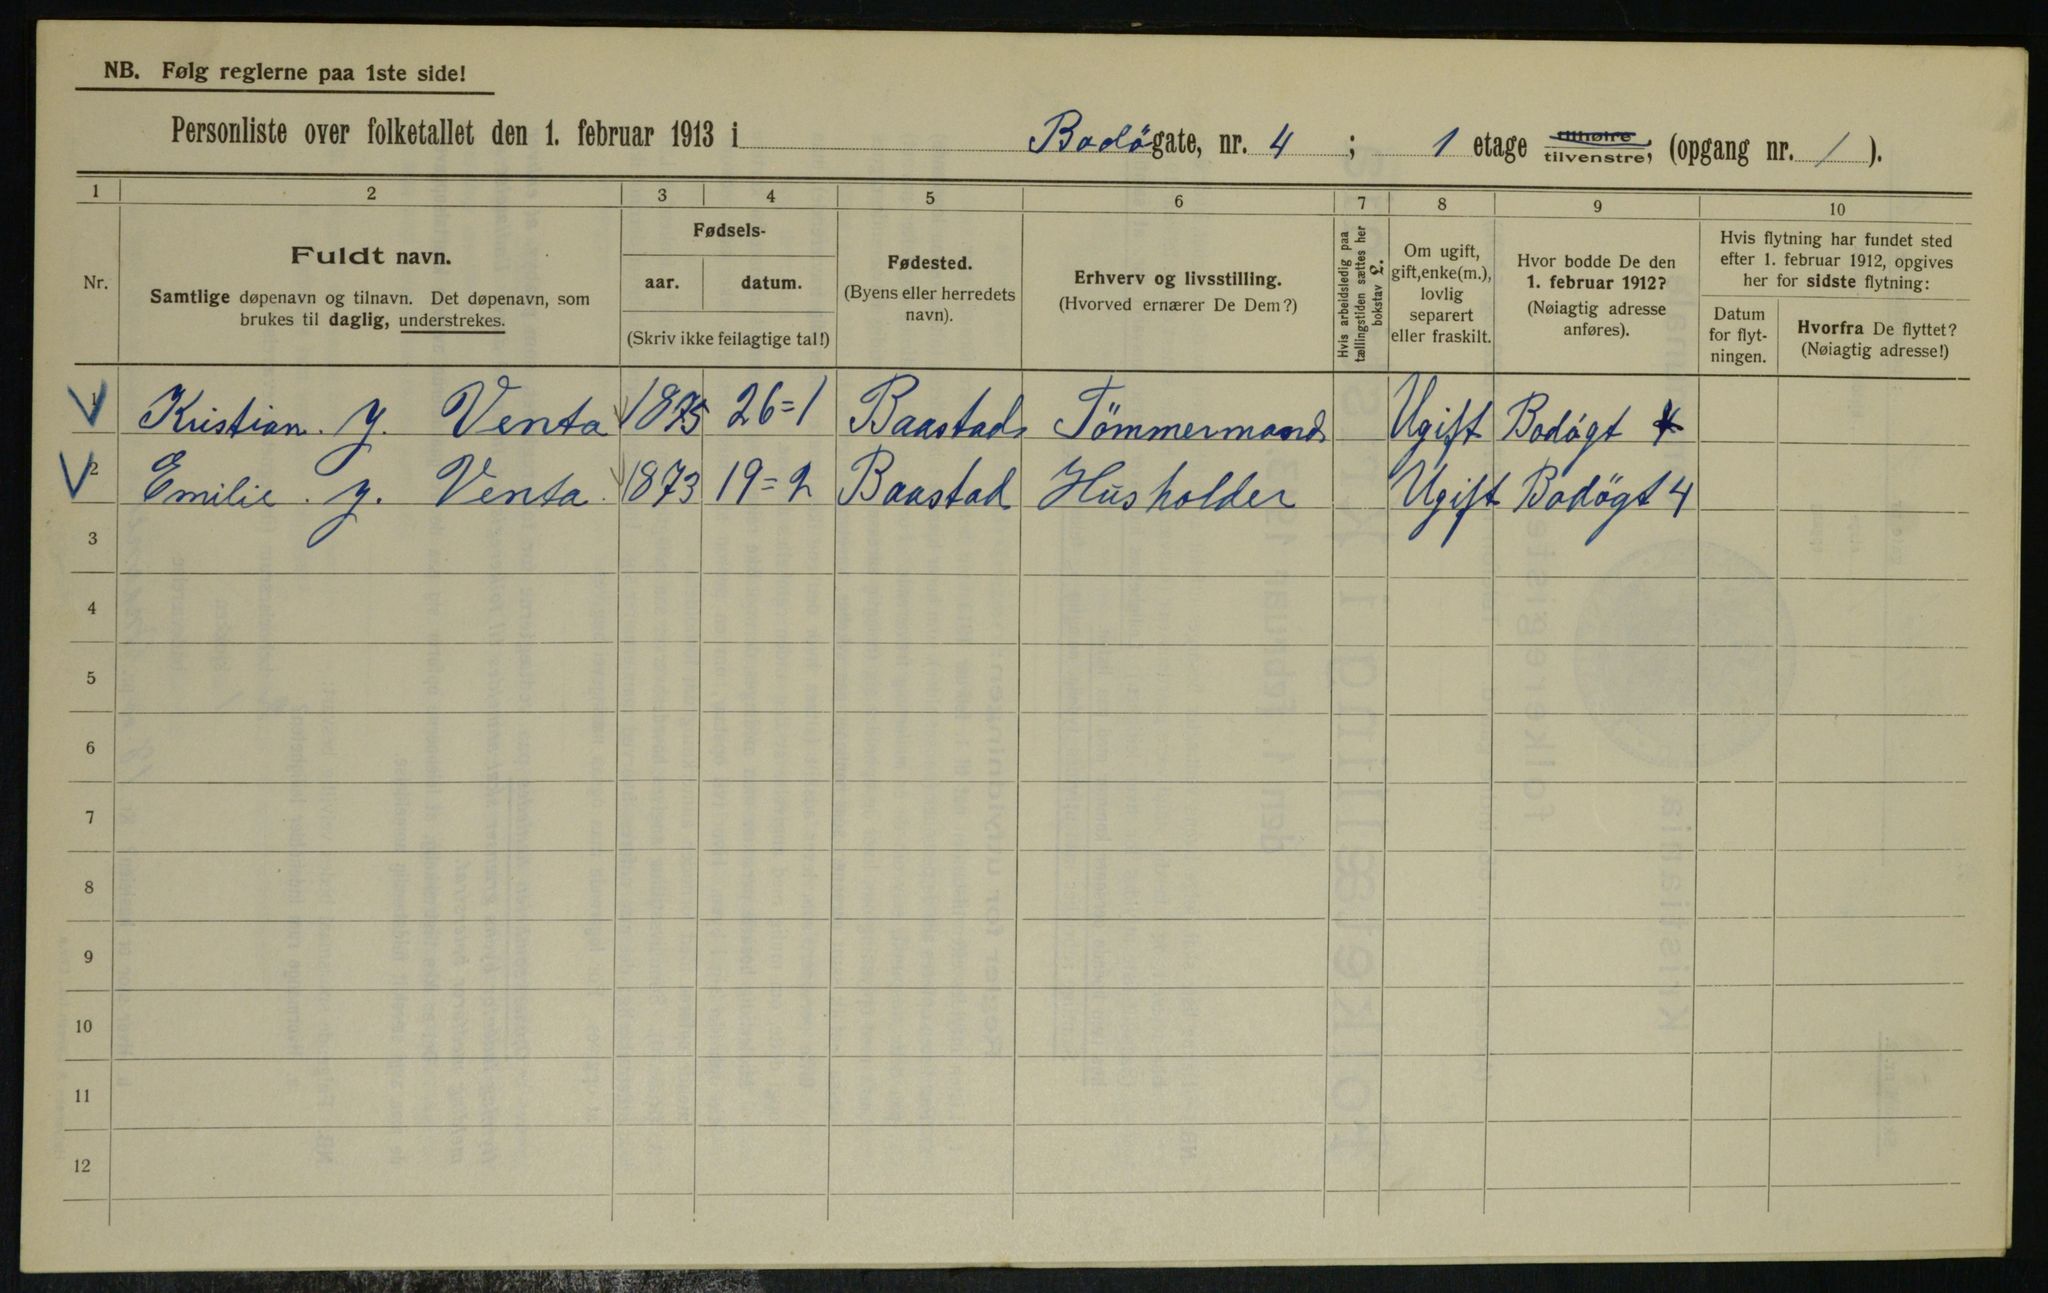 NB. Følg reglerne paa 1ste side!
Personliste over folketallet den 1. februar 1913 i Bodögate, nr. 4 ; 1 etage tilhøire tilvenstre, (opgang nr. 1 ).
1 2 3 4 5 6 7 8 9 10
Nr.
Fuldt navn.
Samtlige døpenavn og tilnavn. Det døpenavn, som
brukes til daglig, understrekes.
Fødsels-
aar. datum.
(Skriv ikke feilagtige tal!)
Fødested.
(Byens eller herredets
navn).
Erhverv og livsstilling.
(Hvorved ernærer De Dem?)
Hvis arbeidsledig paa
tællingstiden sættes her
bokstav L.
Om ugift,
gift, enke(m.),
lovlig
separert
eller fraskilt.
Hvor bodde De den
1. februar 1912?
(Nøiagtig adresse
anføres).
Hvis flytning har fundet sted
efter 1. februar 1912, opgives
her for sidste flytning:
Datum
for flyt-
ningen.
Hvorfra De flyttet?
(Nøiagtig adresse!)
1 Kristian. Y. Venta 1875 26=1 Baastad Tömmermand Ugift Bodøgt 4
2 Emilie. Y. Venta. 1873 19=2 Baastad Husholder Ugift Bodøgt 4
3
4
5
6
7
8
9
10
11
12